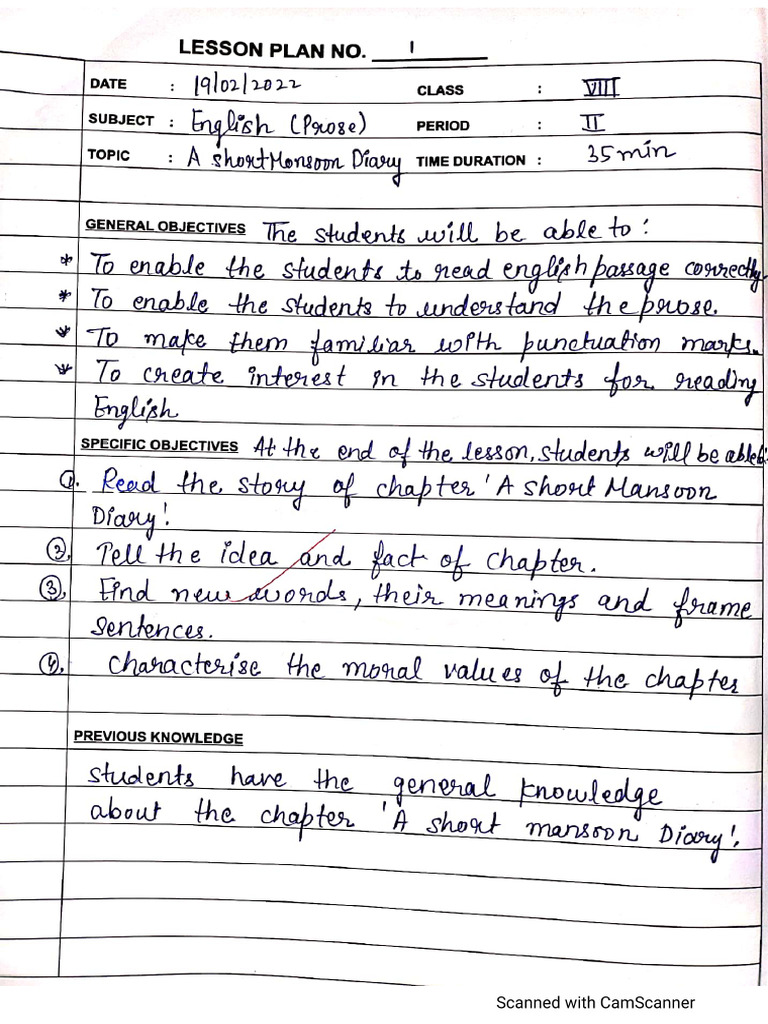 LESSON PLAN NO. 1
DATE : 19/02/2022 CLASS : VIII
SUBJECT : English (Prose) PERIOD : II
TOPIC : A short Monsoon Diary TIME DURATION : 35 min
GENERAL OBJECTIVES The students will be able to :
* To enable the students to read english passage correctly.
* To enable the students to understand the prose.
* To make them familiar with punctuation marks.
* To create interest in the students for reading
English
SPECIFIC OBJECTIVES At the end of the lesson, students will be able to:
1. Read the story of chapter 'A short Mansoon
Diary'.
2. Tell the idea and fact of chapter.
3. Find new words, their meanings and frame
sentences.
4. Characterise the moral values of the chapter
PREVIOUS KNOWLEDGE
students have the general knowledge
about the chapter 'A short mansoon Diary'.
Scanned with CamScanner